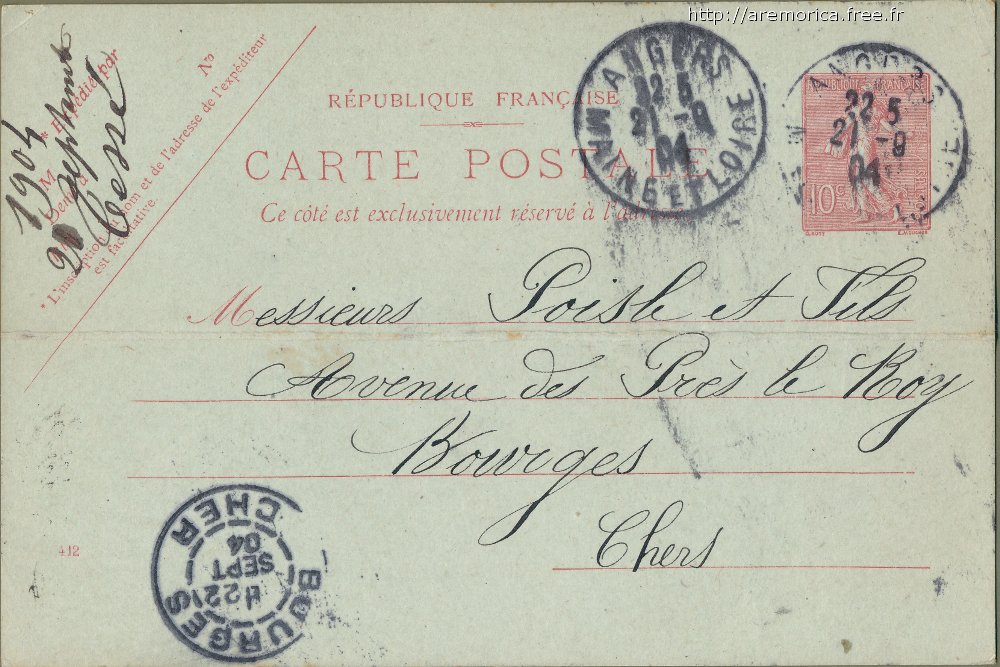 http://aremorica.free.fr
1904
Septembre
Cessé
* Expédié par
M
Demeurant
Nº
* L'inscription du nom et de l'adresse de l'expéditeur
est facultative.
RÉPUBLIQUE FRANÇAISE
CARTE POSTALE
Ce côté est exclusivement réservé à l'adresse.
ANGERS
22 5
21 -9
04
MAINE ET LOIRE
ANGERS
22 5
21 -9
04
REPUBLIQUE FRANÇAISE
10 c
Messieurs Poisle et Fils
Avenue des Près le Roy
Bourges
Chers
412
BOURGES
H 22
SEPT
04
CHER